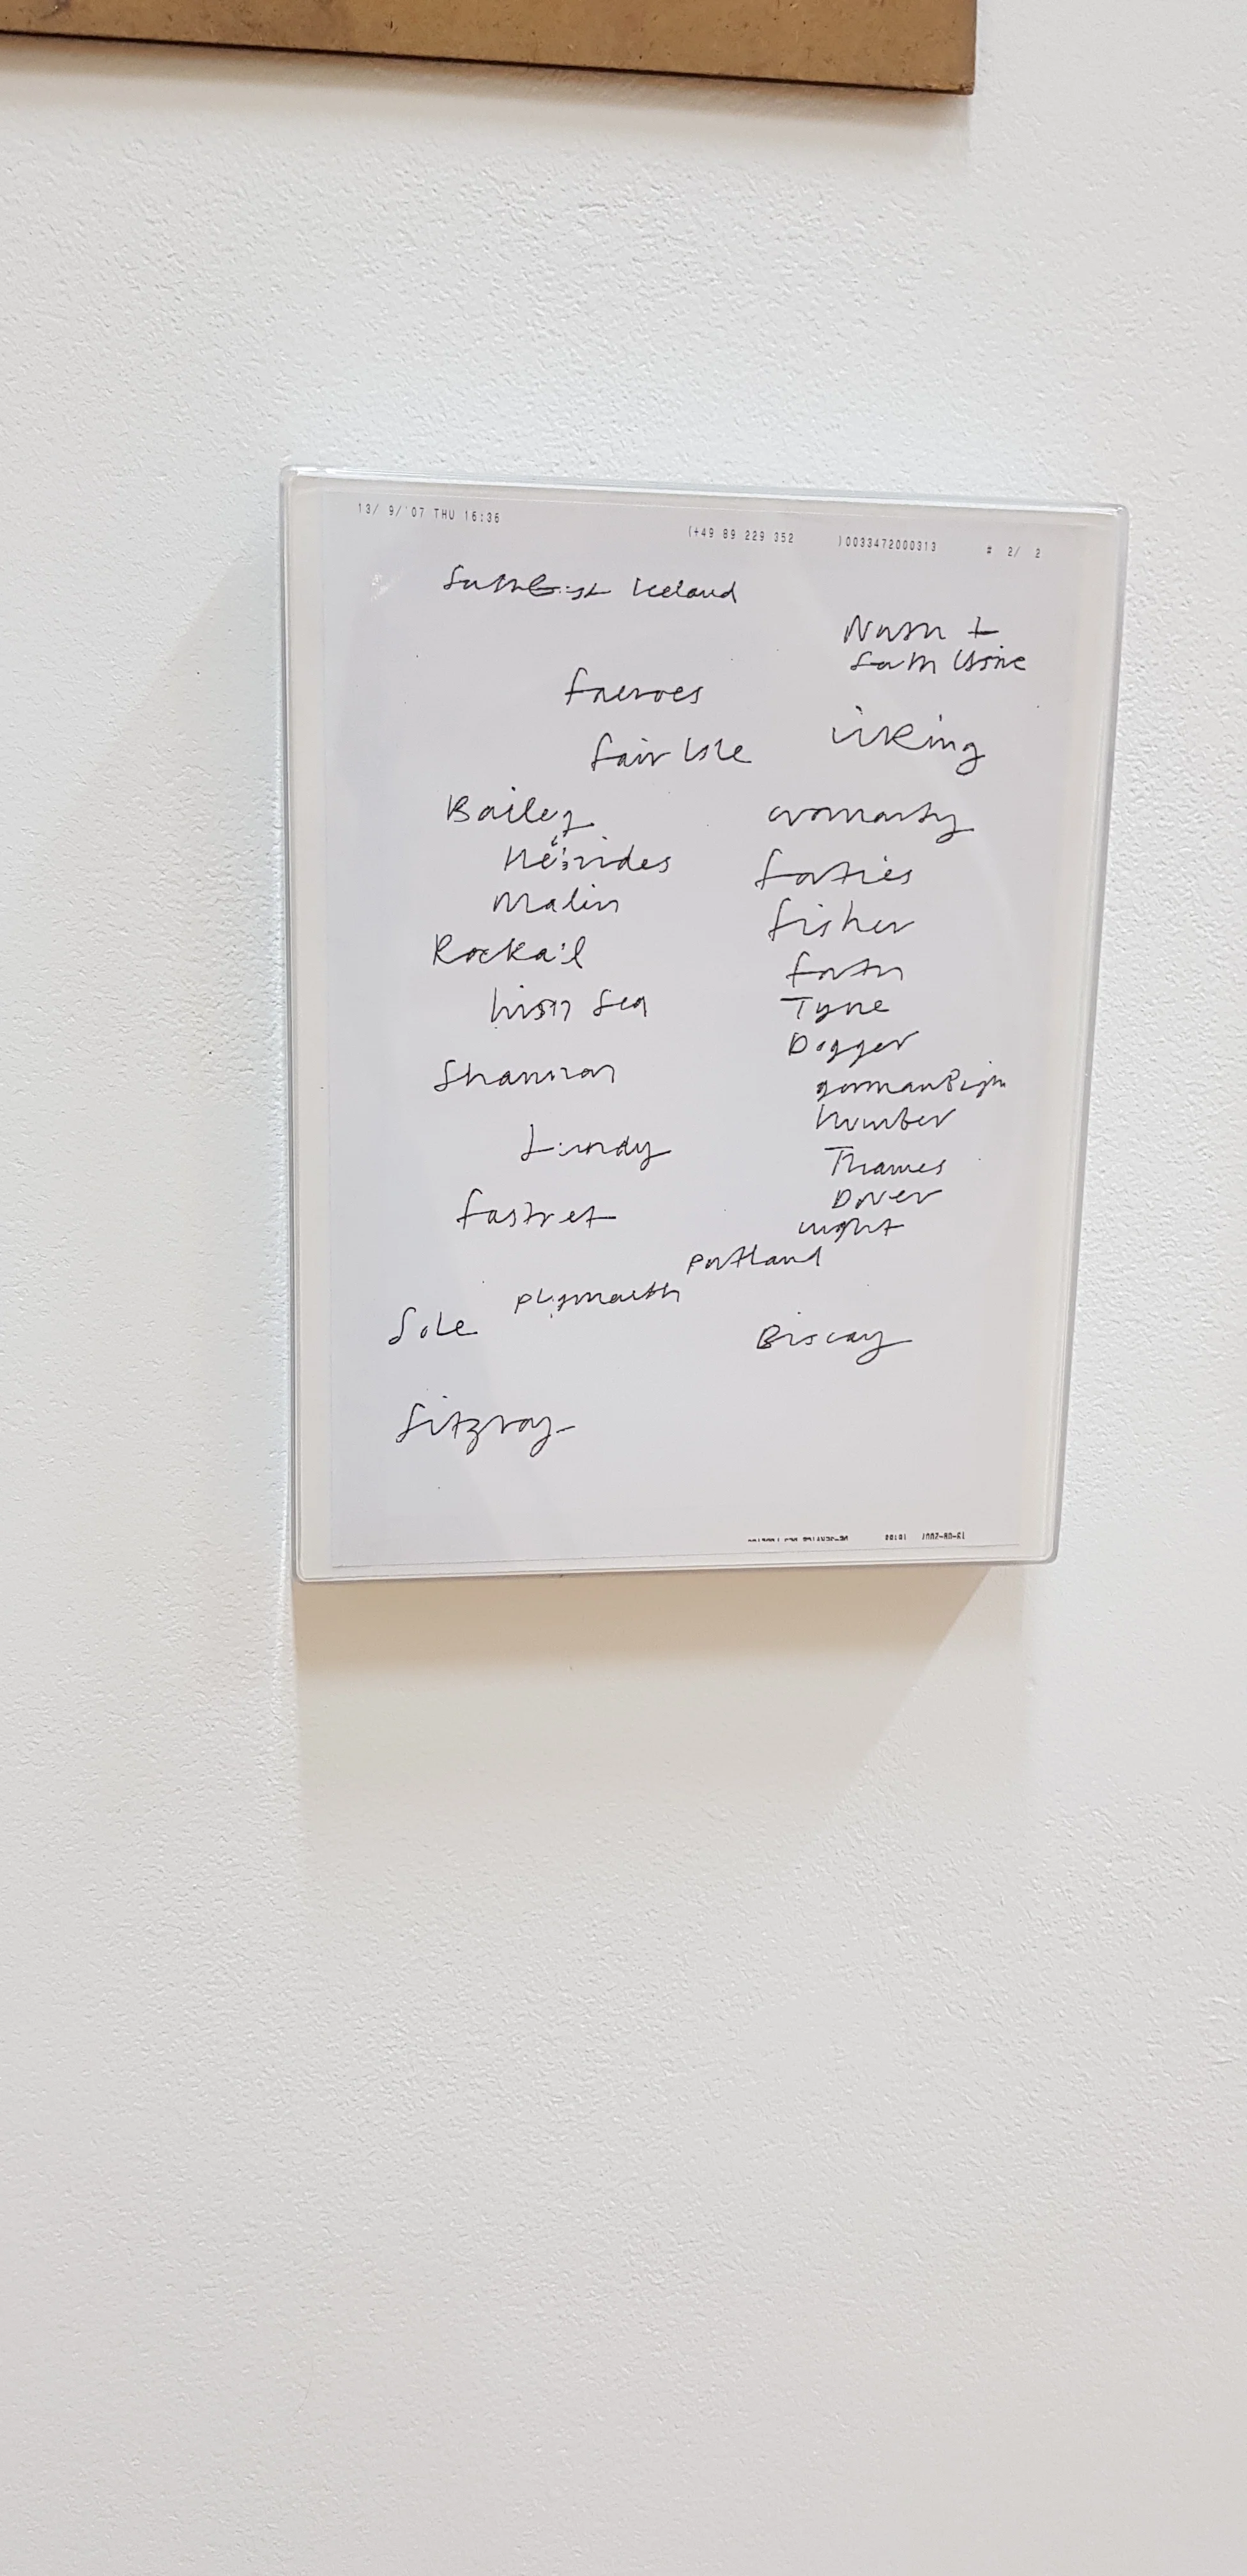 13/ 9/'07 THU 16:36 (+49 89 229 352 )0033472000313 # 2/ 2
SouthEast Iceland
North +
South Utsire
Faeroes
Viking
Fair Isle
Bailey
Cromarty
Hebrides
Forties
Malin
Fisher
Rockall
Forth
Irish Sea
Tyne
Dogger
Shannon
German Bight
Humber
Lundy
Thames
Dover
Fastnet
Wight
Portland
Plymouth
Sole
Biscay
Fitzroy